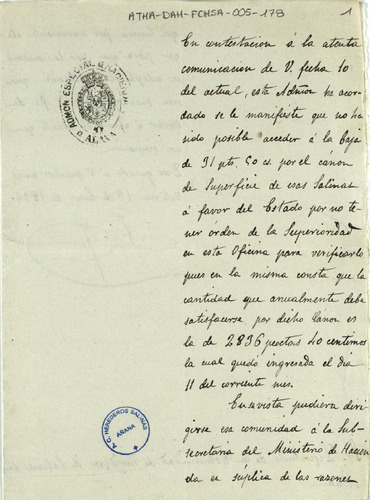 ATHA-DAH-FCHSA-005-178
1
ADMON ESPECIAL DE HACIENDA
ALAVA
En contestacion á la atenta
comunicacion de V. fecha 10
del actual, esta Admon ha acor
dado se le manifieste que no ha
sido posible acceder á la baja
de 31 pts. 50 cs. por el cánon
de Superficie de esas Salinas
á favor del Estado por no te
ner órden de la Superioridad
en esta Oficina para verificarlo
pues en la misma consta que la
cantidad que anualmente debe
satisfacerse por dicho Canon es
la de 2836 pesetas 40 centimos
la cual quedó ingresada el dia
11 del corriente mes.
En su vista pudiera diri
girse esa comunidad á la Sub-
secretaria del Ministerio de Hacien
da en súplica de las razones
C. HEREDEROS SALINAS
AÑANA